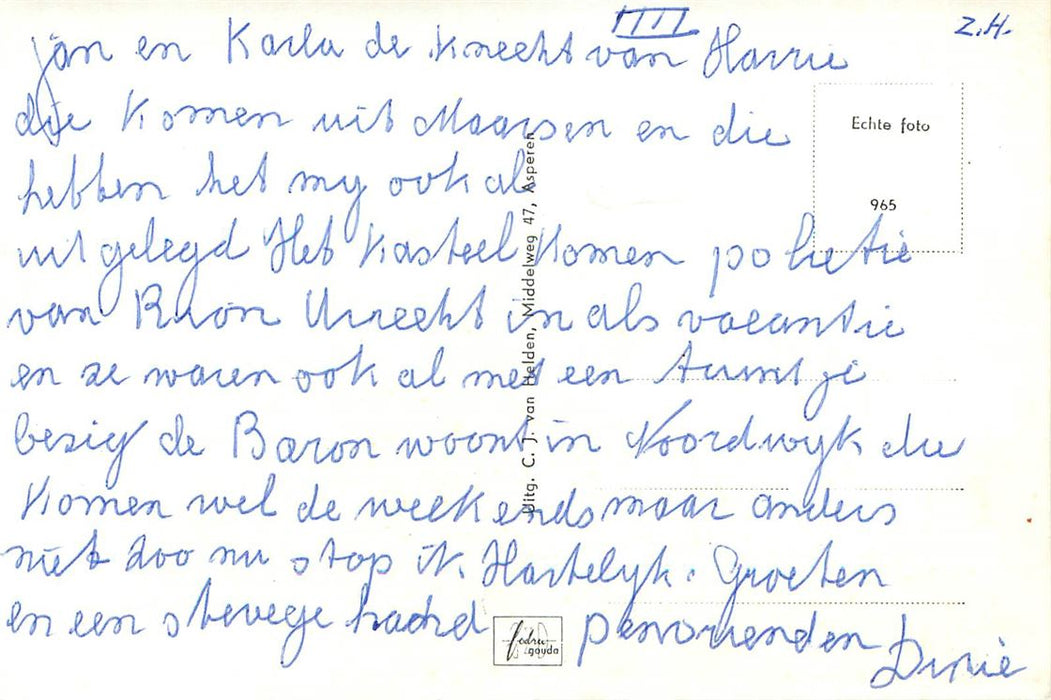 IIII
Z.H.
Jan en Karla de knecht van Harrie
die komen uit Maarsen en die
hebben het my ook al
uitgelegd Het Kasteel komen politie
van Utrecht in als vacantie
en ze waren ook al met een
bezig de Baron woont in Noordwyk die
komen wel de weekends maar anders
niet zoo nu stop ik. Hartelyk. Groeten
en een stevege hand penvrienden
Dinie
Echte foto
965
Uitg. C. J. van Helden, Middelweg 47, Asperen
gouda